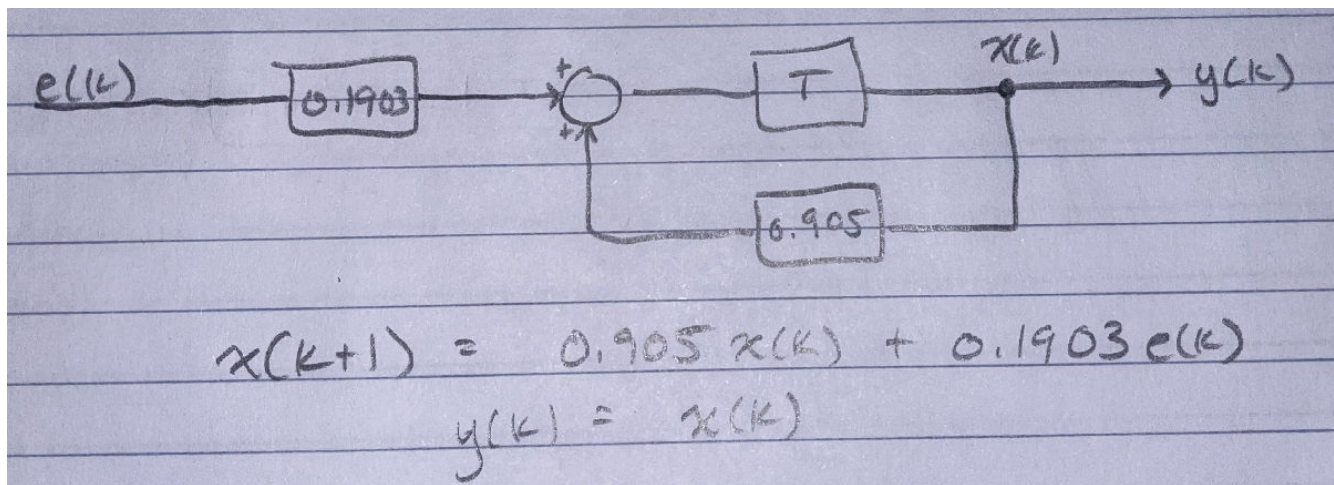 x(k)
e(k) 0.1903 + T y(k)
+
0.905
x(k+1) = 0.905 x(k) + 0.1903 e(k)
y(k) = x(k)